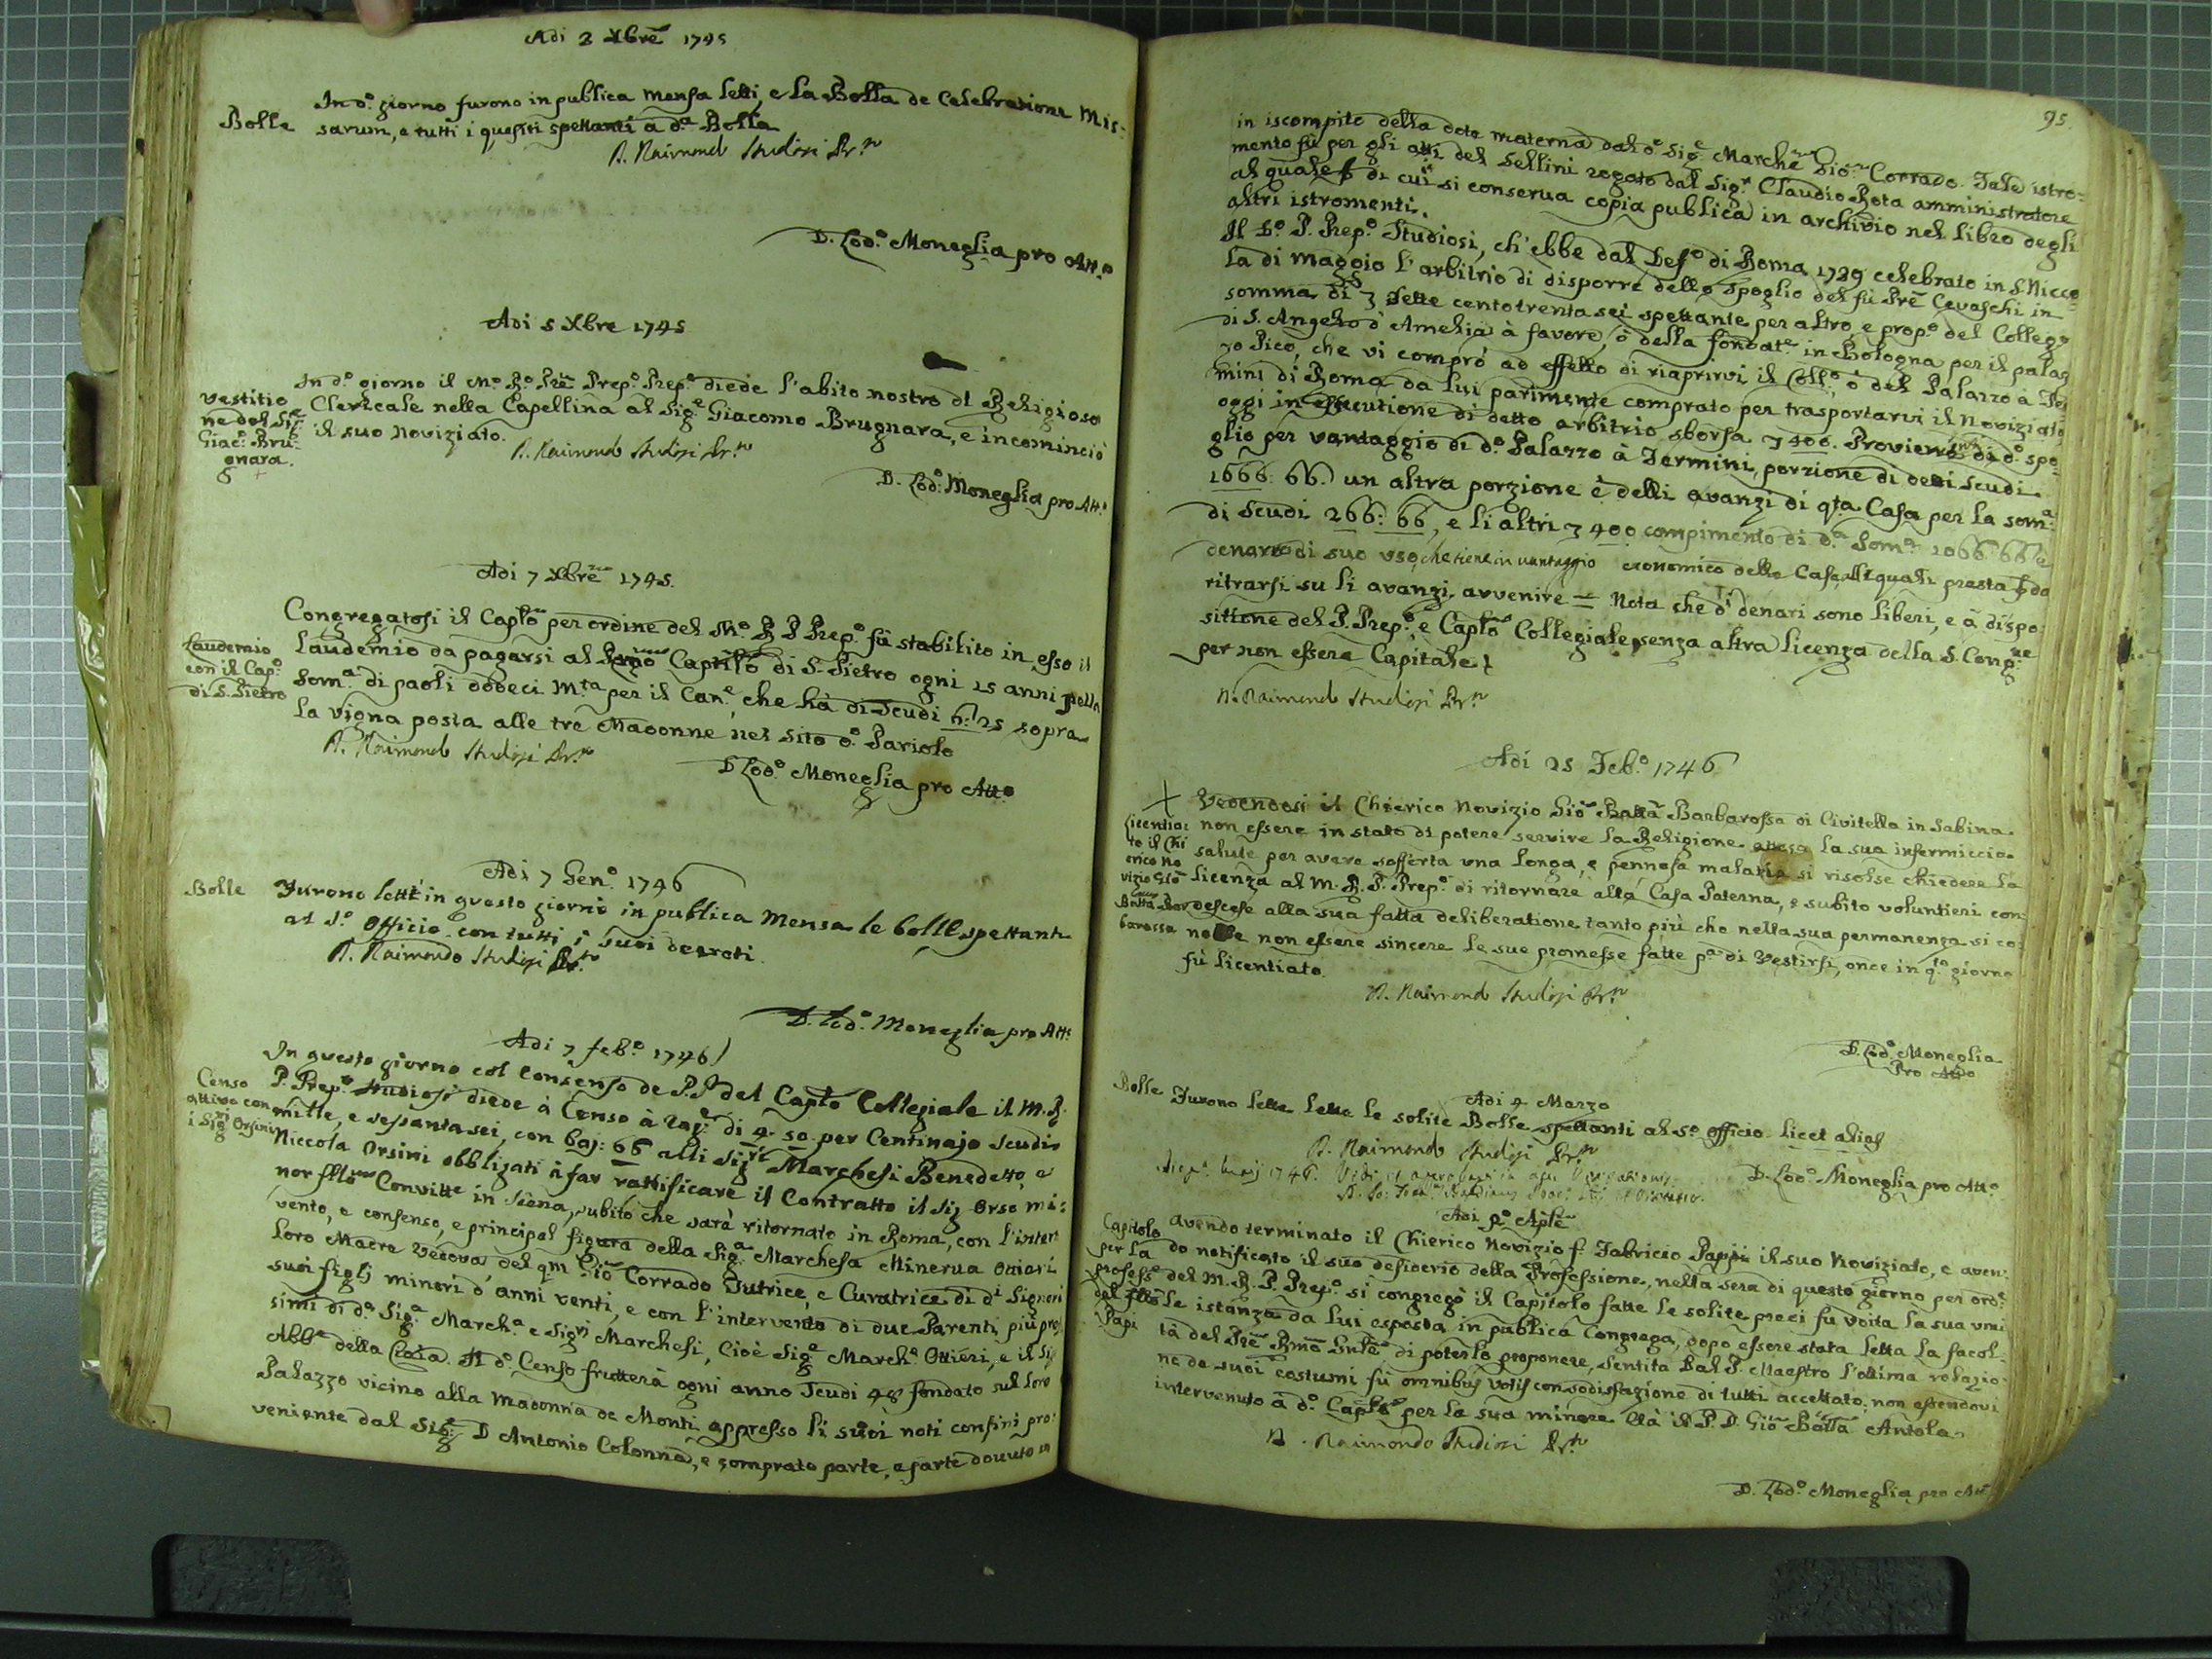 Adi 2 Xbre 1745
In d.o giorno furono in publica mensa letti, e la Bolla de Celebratione Mis-
Bolle sarum, e tutti i quesiti spettanti à d.a Bolla
D. Raimondo Studiosi Pr.to
D. Lod.o Moneglia pro Att.o
Adi 5 Xbre 1745
In d.o giorno il M.o R.o Prē Prep.o Prep.o diede l'abito nostro di Religioso
vestitio
ne del Sig.e
Giac.o Bru-
gnara.
Clericale nella Capellina al Sig.e Giacomo Brugnara, e incominciò
il suo noviziato.
D. Raimondo Studiosi Pr.to
D. Lod.o Moneglia pro Att.o
Adi 7 Xbre 1745.
Congregatosi il Caplo per ordine del M.o R P Prep.o fù stabilito in esso il
Laudemio
con il Cap.o
di S. Pietro
Laudemio da pagarsi al Rmo Capitlo di S. Pietro ogni 15 anni nella
Som.a di paoli dodeci m.ta per il Can.e, che hà di Scudi 6: 25 sopra
la vigna posta alle tre Madonne nel sito d.o Pariolo
D. Raimondo Studiosi Pr.to
D Lod.o Moneglia pro Att.o
Adi 7 Gen.o 1746
Bolle Furono lette in questo giorno in publica Mensa le bolle spettanti
al S.o Officio con tutti i suoi decreti.
D. Raimondo Studiosi Pr.to
D. Lod.o Moneglia pro Att.o
Adi 7 feb.o 1746
In questo giorno col consenso de P.P. del Caplo Collegiale il M.R.
Censo
attivo con
i Sig.ri Orsini
P. Prep.o Studiosi diede à Censo à rag.e di 4. 50 per Centinajo Scudi
mille, e sessantasei, con baj: 66 alli Sig.ri Marchesi Benedetto, e
Niccola Orsini obbligati à far rattificare il Contratto il Sig Orso mi-
nor fllo Convitt.e in Siena, subito che sarà ritornato in Roma, con l'inter-
vento, e consenso, e principal figura della Sig.a Marchesa Minerua Ottieri
loro Madre Vedova del qm Gio Corrado Tutrice, e Curatrice di d.i Signori
suoi figlj minori d'anni venti, e con l'intervento di due Parenti più pros-
simi di d.a Sig.a March.a e Sig.ri Marchesi, cioè Sig.e March.e Ottieri, e il Sig
Abb.e della Ciaia. Il d.o Censo frutterà ogni anno Scudi 48 fondato sul loro
Palazzo vicino alla Madonna de Monti appresso li suoi noti confini pro-
veniente dal Sig.e D Antonio Colonna, e comprato parte, e parte dovuto in
95.
in iscompito della dote materna dal d.o Sig.e Marche Gio: Corrado. Tale istro-
mento fù per gli atti del Sellini rogato dal Sig.r Claudio Rota amministratore
al quale di cui si conserua copia publica in archivio nel libro degli
altri istromenti.
Il d.o P. Prep.o Studiosi, ch'ebbe dal Def.o di Roma 1739 celebrato in S. Nicco-
la di maggio l'arbitrio di disporre dello spoglio del fù Prē Cevaschi in
somma di sette cento trenta sei spettante per altro, e prop.o del Collegio
di S. Angelo d'Amelia à favore, ò della fondat.e in Bologna per il palaz
zo Pico, che vi comprò ad effetto di riaprirvi il Coll.o, ò del Palazzo à Ter
mini di Roma da lui parimente comprato per trasportarvi il Noviziato
oggi in essecutione di detto arbitrio sborsa 400. Proviens da d.o spo-
glio per vantaggio di d.o Palazzo à Termini, porzione di detti scudi
1666: 66. un altra porzione è delli avanzi di qta Casa per la som.a
di Scudi 266: 66, e li altri 400 compimento di d.a Som.a 1066: 66 e
denaro di suo uso, che tiene in vantaggio economico della Casa, alli quali presta da
ritrarsi su li avanzi avvenire = Nota che d.i denari sono liberi, e à dispo-
sittione del P. Prep.o, e Caplo Collegiale, senza altra licenza della S. Cong.ne
per non essere Capitale.
D. Raimondo Studiosi Pr.to
Adi 25 Feb.o 1746
Vedendosi il Chierico Novizio Gio Batta Barbarossa di Civitella in Sabina
Licentia-
to il Chi
erico No
vizio Gio
Batta Bar
barossa
non essere in stato di potere servire la Religione attesa la sua infermiccia
salute per avere sofferta una longa, e pennosa malatia si risolse chiedere la
licenza al M. R. P. Prep.o di ritornare alla Casa Paterna, e subito voluntieri con-
descese alla sua fatta deliberatione, tanto più che nella sua permanenza si co-
nobbe non essere sincere le sue promesse fatte p.a di Vestirsi, onde in q.to giorno
fù licentiato.
D. Raimondo Studiosi Pr.to
D. Lod.o Moneglia
Pro Att.o
Adi 4 Marzo
Bolle Furono lette lette le solite Bolle spettanti al S.o Officio licet alias
D. Raimondo Studiosi Pr.to
D. Lod.o Moneglia pro Att.o
1746. Vidi et approbavi in actu Visitationis
Adi p.o Aple
Capitolo
per la
profess.e
del fllo
Papi
avendo terminato il Chierico Novizio f. Fabricio Papi il suo Noviziato, e aven-
do notificato il suo desiderio della Professione, nella sera di questo giorno per ord.e
del M. R. P. Prep.o si congregò il Capitolo fatte le solite preci fù udita la sua umi
le istanza da lui esposta in publica Congrega, dopo essere stata letta la facol-
tà del Prē Rmo Gnle di poterlo proponere, sentita dal P. Maestro l'ottima relazio-
ne de suoi costumi fù omnibus votis con sodisfazione di tutti accettato: non essendovi
intervenuto à d.o Caplo per la sua minore età il P. D. Gio Batta Antola
D. Raimondo Studiosi Pr.to
D. Lod.o Moneglia pro Att.o